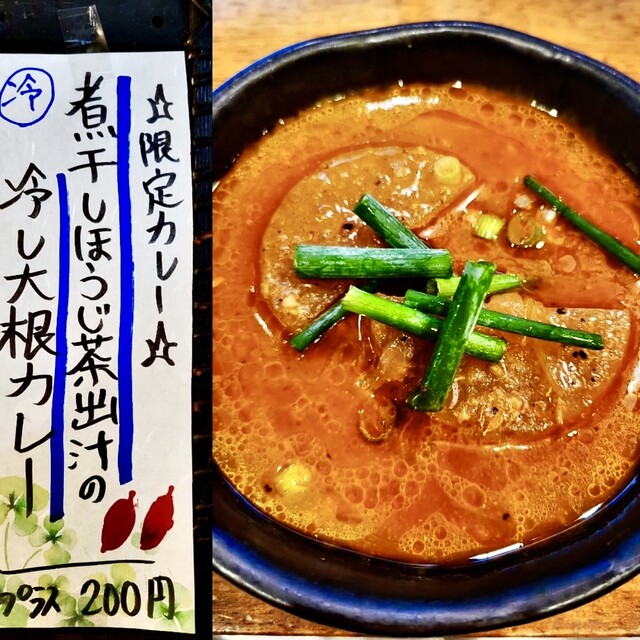 ☆限定カレー☆
煮干しほうじ茶出汁の
冷し大根カレー
冷
プラス 200円